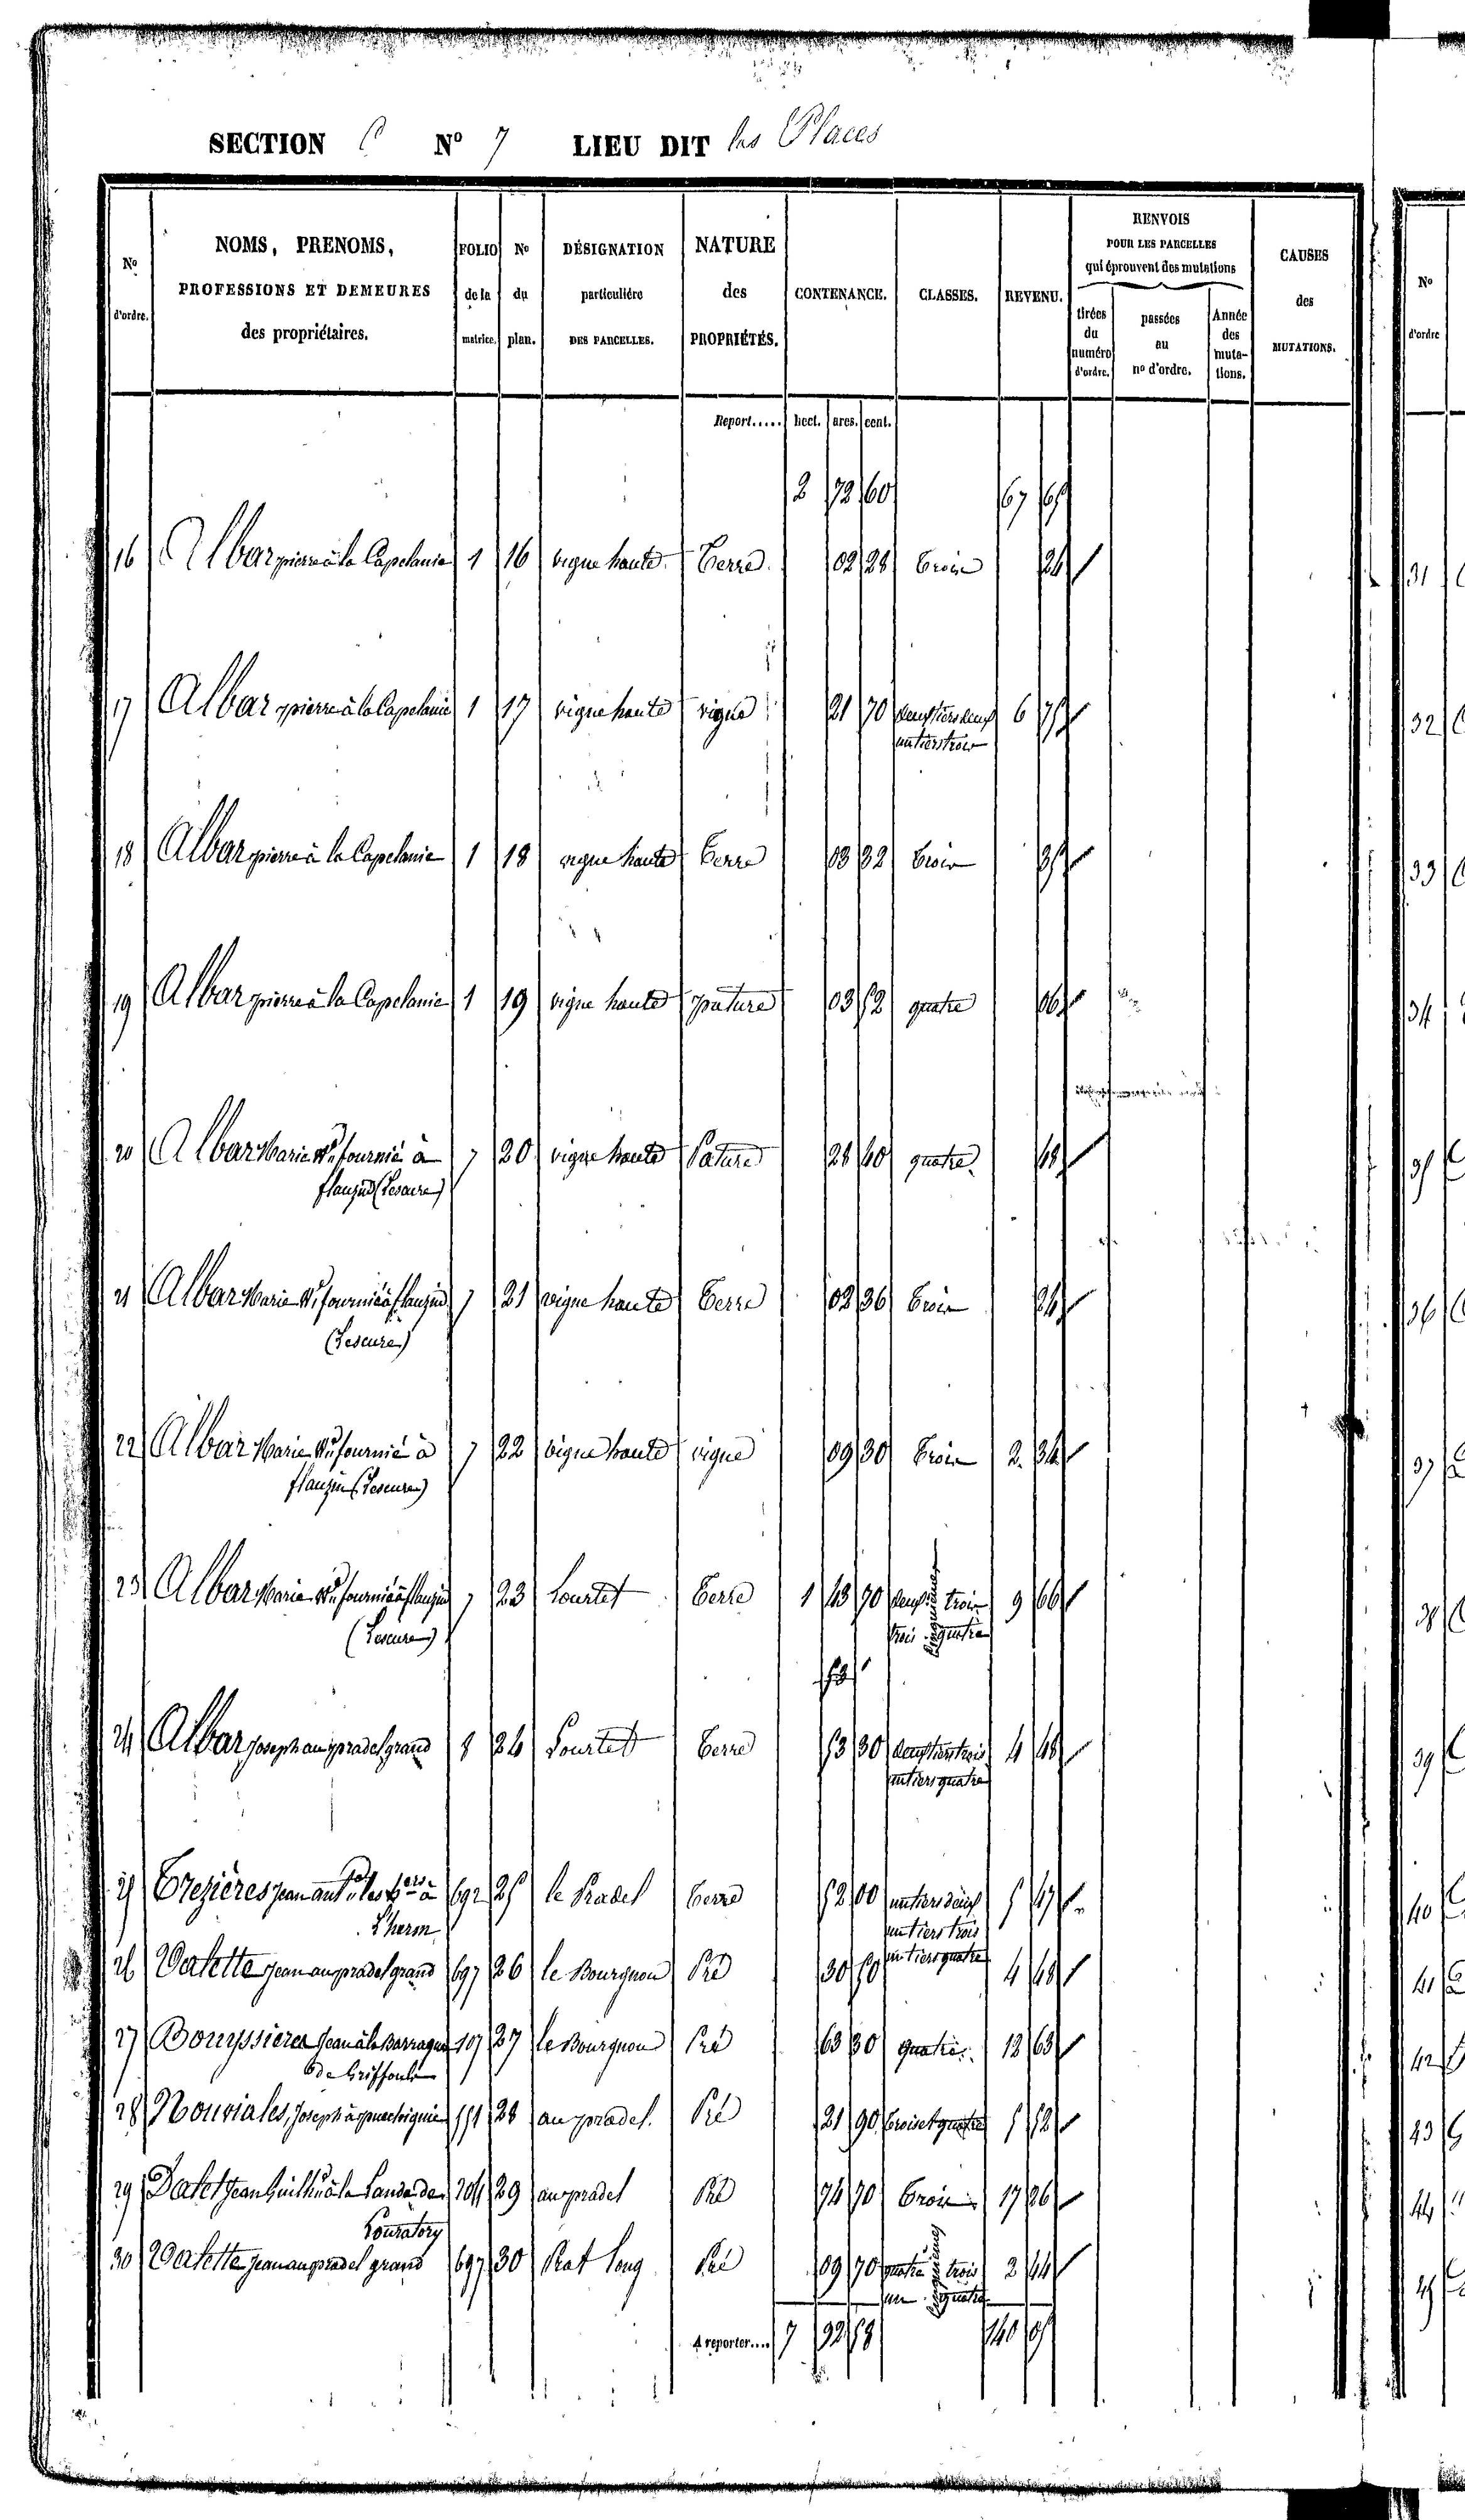 SECTION C N° 7 LIEU DIT les Places
N° d'ordre. NOMS, PRENOMS, PROFESSIONS ET DEMEURES des propriétaires. FOLIO de la matrice. N° du plan. DÉSIGNATION particulière DES PARCELLES. NATURE des PROPRIÉTÉS. CONTENANCE. CLASSES. REVENU. RENVOIS POUR LES PARCELLES qui éprouvent des mutations tirées du numéro d'ordre. passées au n° d'ordre. Année des muta-tions. CAUSES des MUTATIONS.
Report..... hect. ares. cent.
2 72 60 67 65
16 Albar pierre à la Capelanie 1 16 vigne haute Terre 02 28 trois 24
17 Albar pierre à la Capelanie 1 17 vigne haute vigne 21 70 deux tiers deux 6 75
un tiers trois
18 Albar pierre à la Capelanie 1 18 vigne haute Terre 03 32 trois 35
19 Albar pierre à la Capelanie 1 19 vigne haute pature 03 52 quatre 06
20 Albar Marie Ve fournié à 7 20 vigne haute Pature 28 40 quatre 48
flauzins (Lescure)
21 Albar Marie Ve fournié à flauzins 7 21 vigne haute Terre 02 36 trois 24
(Lescure)
22 Albar Marie Ve fournié à 7 22 vigne haute vigne 09 30 trois 2 34
flauzins (Lescure)
23 Albar Marie Ve fournié à flauzins 7 23 Courtet Terre 1 43 70 deux cinquièmes trois 9 66
(Lescure) trois quatre
24 Albar Joseph au pradel grand 8 24 Courtet Terre 53 30 deux tiers trois 4 48
un tiers quatre
25 Trezières jean ant à Lherm 692 25 le Pradel Terre 52 00 un tiers deux 5 47
un tiers trois
un tiers quatre
26 Valette jean au pradel grand 697 26 le Bourgnou Pré 30 50 4 48
27 Bouyssières jean à la Barraque 107 27 le Bourgnou Pré 63 30 quatre 12 63
de Griffoul
28 Nouviales, Joseph à puechiguier 551 28 au pradel Pré 21 90 trois et quatre 5 52
29 29 au pradel Pré 74 70 trois 17 26
Couratory
30 Valette jean au pradel grand 697 30 Prat long Pré 09 70 quatre cinquièmes trois 2 14
un quatre
A reporter.... 7 92 58 140 05
31
32
33
34
35
36
37
38
39
40
41
42
43
44
45